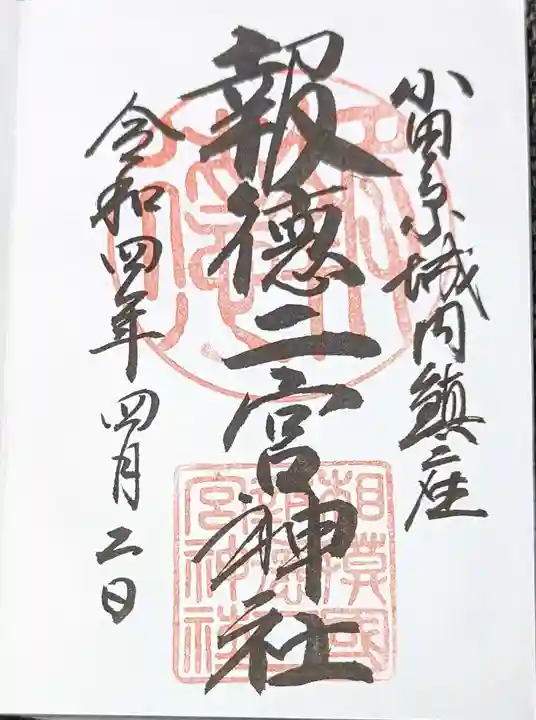 小田原城内鎮座
報徳二宮神社
令和四年四月二日
相模國
報徳二
宮神社